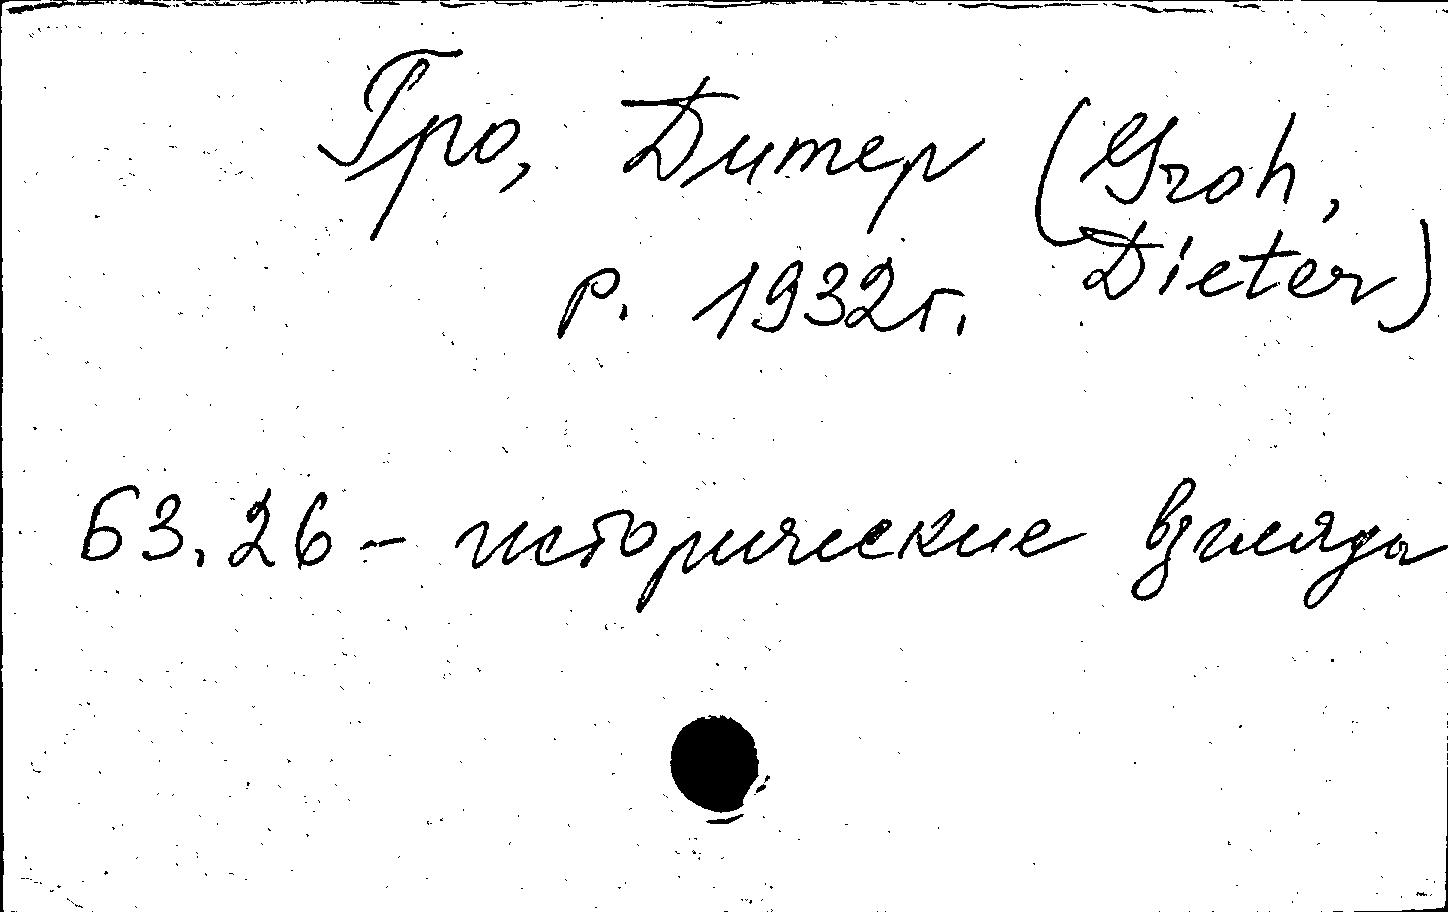 Гро, Дитер (Groh,
Dieter)
р. 1932г.
63.26 - исторические взгляды